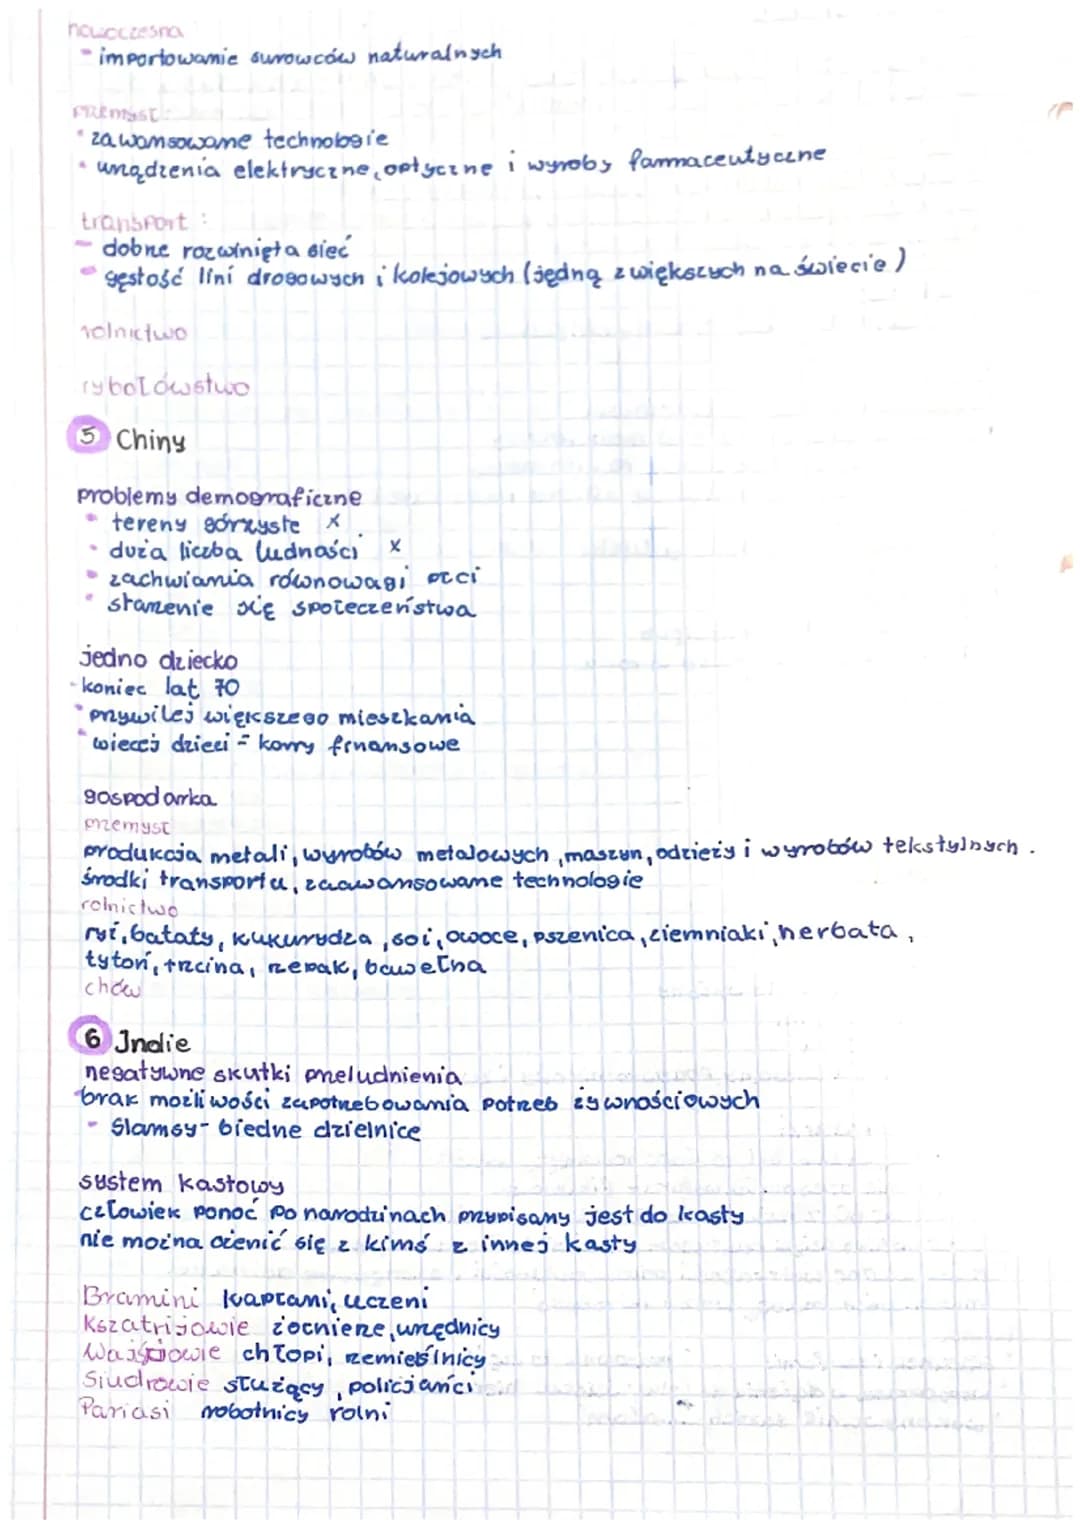 nowoczesna
- importowanie surowców naturalnych
przemysł:
• zawansowane technologie
• urządzenia elektryczne, optyczne i wyroby farmaceutyczne
transport:
- dobrze rozwinięta sieć
• gęstość lini drogowych i kolejowych (jedną z większych na świecie)
rolnictwo
rybołówstwo
5 Chiny
problemy demograficzne
• tereny górzyste x
• duża liczba ludności x
• zachwiania równowagi płci
• starzenie się społeczeństwa
jedno dziecko
- koniec lat 70
• przywilej większego mieszkania
• więcej dzieci = karry finansowe
gospodarka
przemysł
produkcja metali, wyrobów metalowych, maszyn, odzieży i wyrobów tekstylnych.
środki transportu, zaawansowane technologie
rolnictwo
ryż, bataty, kukurydza, soi, owoce, pszenica, ziemniaki, herbata,
tytoń, trzcina, rzepak, bawełna
chów
6 Indie
negatywne skutki przeludnienia
• brak możliwości zapotrzebowania potrzeb żywnościowych
- Slamsy - biedne dzielnice
system kastowy
człowiek ponoć po narodzinach przypisany jest do kasty
nie można ożenić się z kimś z innej kasty
Bramini kapłani, uczeni
Kszatrijowie żołnierze, urzędnicy
Wajśjowie chłopi, rzemieślnicy
Siudrowie służący, policjanci
Pariasi robotnicy rolni